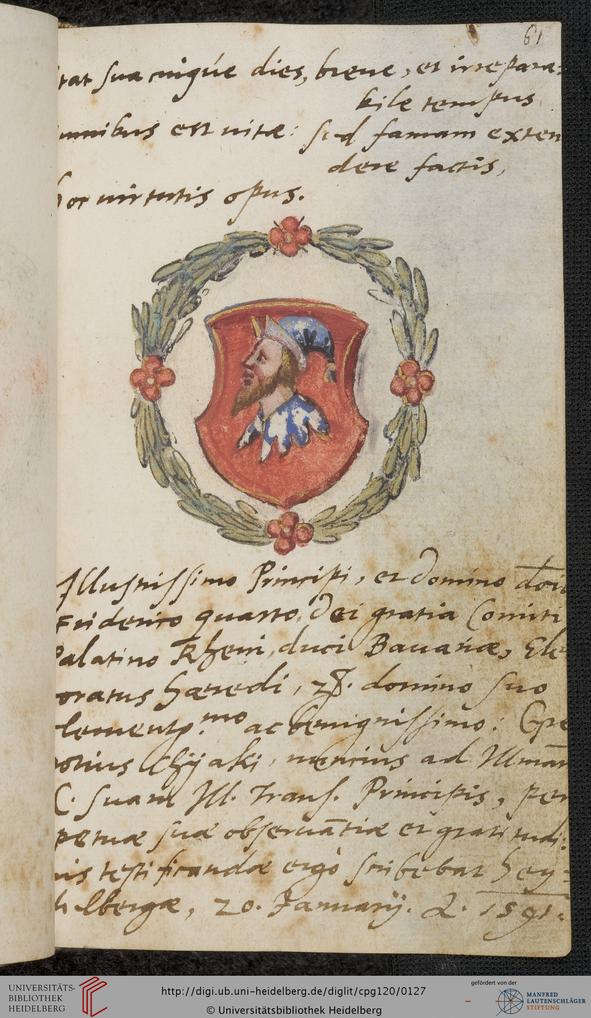 61
tat sua cuique dies, breve, et irrepara:
bile tempus
omnibus est vitæ: sed famam exten
dere factis,
hoc virtutis opus.
Illustrissimo Principi, et Domino dōi
Friderico quarto, Dei gratia Comiti
Palatino Rheni, duci Bavariæ, Ele
toratus hæredi, z̃. domino suo
clementiss.mo ac benignissimo:
Chijaki, nuncius ad Illmam
C. suam Ill. Trans. Principis, per
petuæ suæ observātiæ et gratitudi:
nis testificandæ ergò scribebat Hey=
lbergæ, 20. Januarij. A. 1591.
UNIVERSITÄTS-
BIBLIOTHEK
HEIDELBERG
http://digi.ub.uni-heidelberg.de/diglit/cpg120/0127
© Universitätsbibliothek Heidelberg
gefördert von der
MANFRED
LAUTENSCHLÄGER
STIFTUNG